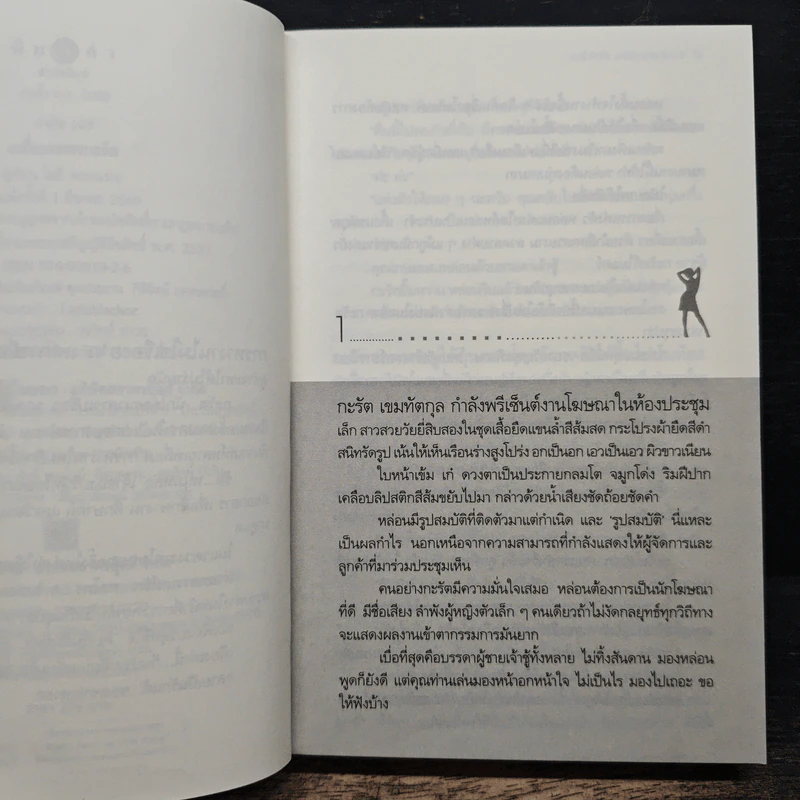 1
กะรัต เขมทัตกุล กำลังพรีเซ็นต์งานโฆษณาในห้องประชุม
เล็ก สาวสวยวัยยี่สิบสองในชุดเสื้อยืดแขนล้ำสีส้มสด กระโปรงผ้ายืดสีดำ
สนิทรัดรูป เน้นให้เห็นเรือนร่างสูงโปร่ง อกเป็นอก เอวเป็นเอว ผิวขาวเนียน
ใบหน้าเข้ม เก๋ ดวงตาเป็นประกายกลมโต จมูกโด่ง ริมฝีปาก
เคลือบลิปสติกสีส้มขยับไปมา กล่าวด้วยน้ำเสียงชัดถ้อยชัดคำ
หล่อนมีรูปสมบัติที่ติดตัวมาแต่กำเนิด และ 'รูปสมบัติ' นี่แหละ
เป็นผลกำไร นอกเหนือจากความสามารถที่กำลังแสดงให้ผู้จัดการและ
ลูกค้าที่มาร่วมประชุมเห็น
คนอย่างกะรัตมีความมั่นใจเสมอ หล่อนต้องการเป็นนักโฆษณา
ที่ดี มีชื่อเสียง ลำพังผู้หญิงตัวเล็ก ๆ คนเดียวถ้าไม่งัดกลยุทธ์ทุกวิถีทาง
จะแสดงผลงานเข้าตากรรมการมันยาก
เบื่อที่สุดคือบรรดาผู้ชายเจ้าชู้ทั้งหลาย ไม่ทิ้งสันดาน มองหล่อน
พูดก็ยังดี แต่คุณท่านเล่นมองหน้าอกหน้าใจ ไม่เป็นไร มองไปเถอะ ขอ
ให้ฟังบ้าง